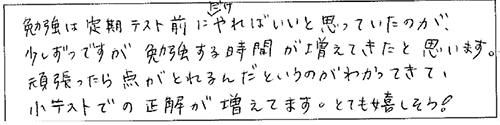 勉強は定期テスト前にだけやればいいと思っていたのが、
少しずつですが勉強する時間が増えてきたと思います。
頑張ったら点がとれるんだというのがわかってきて、
小テストでの正解が増えてます。とても嬉しそう!